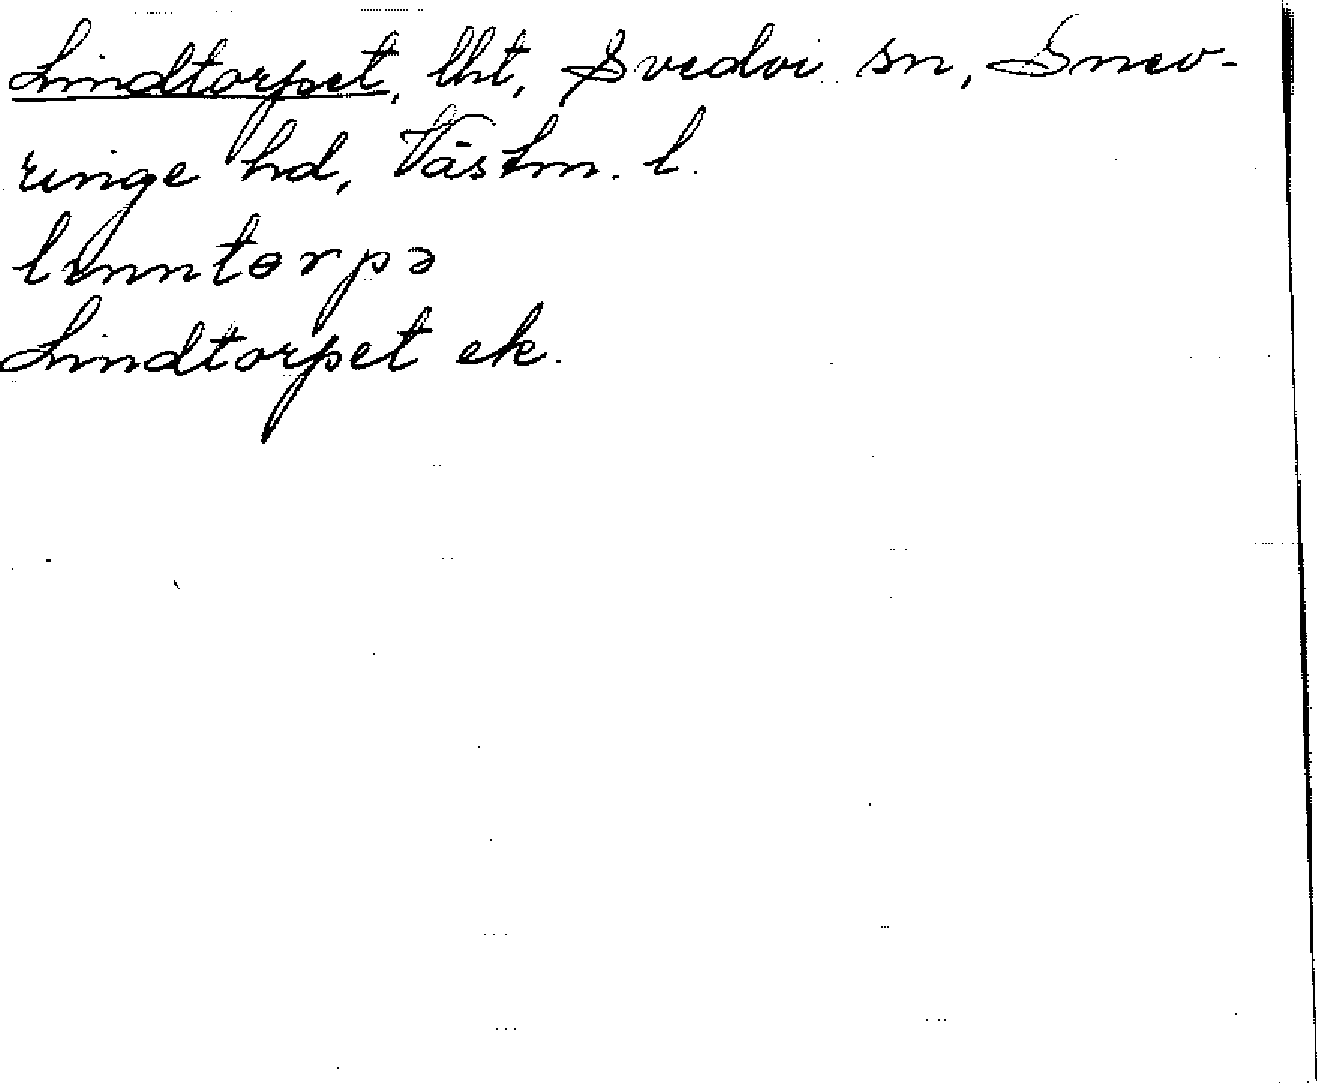 Lindtorpet, lht, Svedvi sn, Snev-
ringe hd, Västm. l.
lınntɵrpə
Lindtorpet ek.